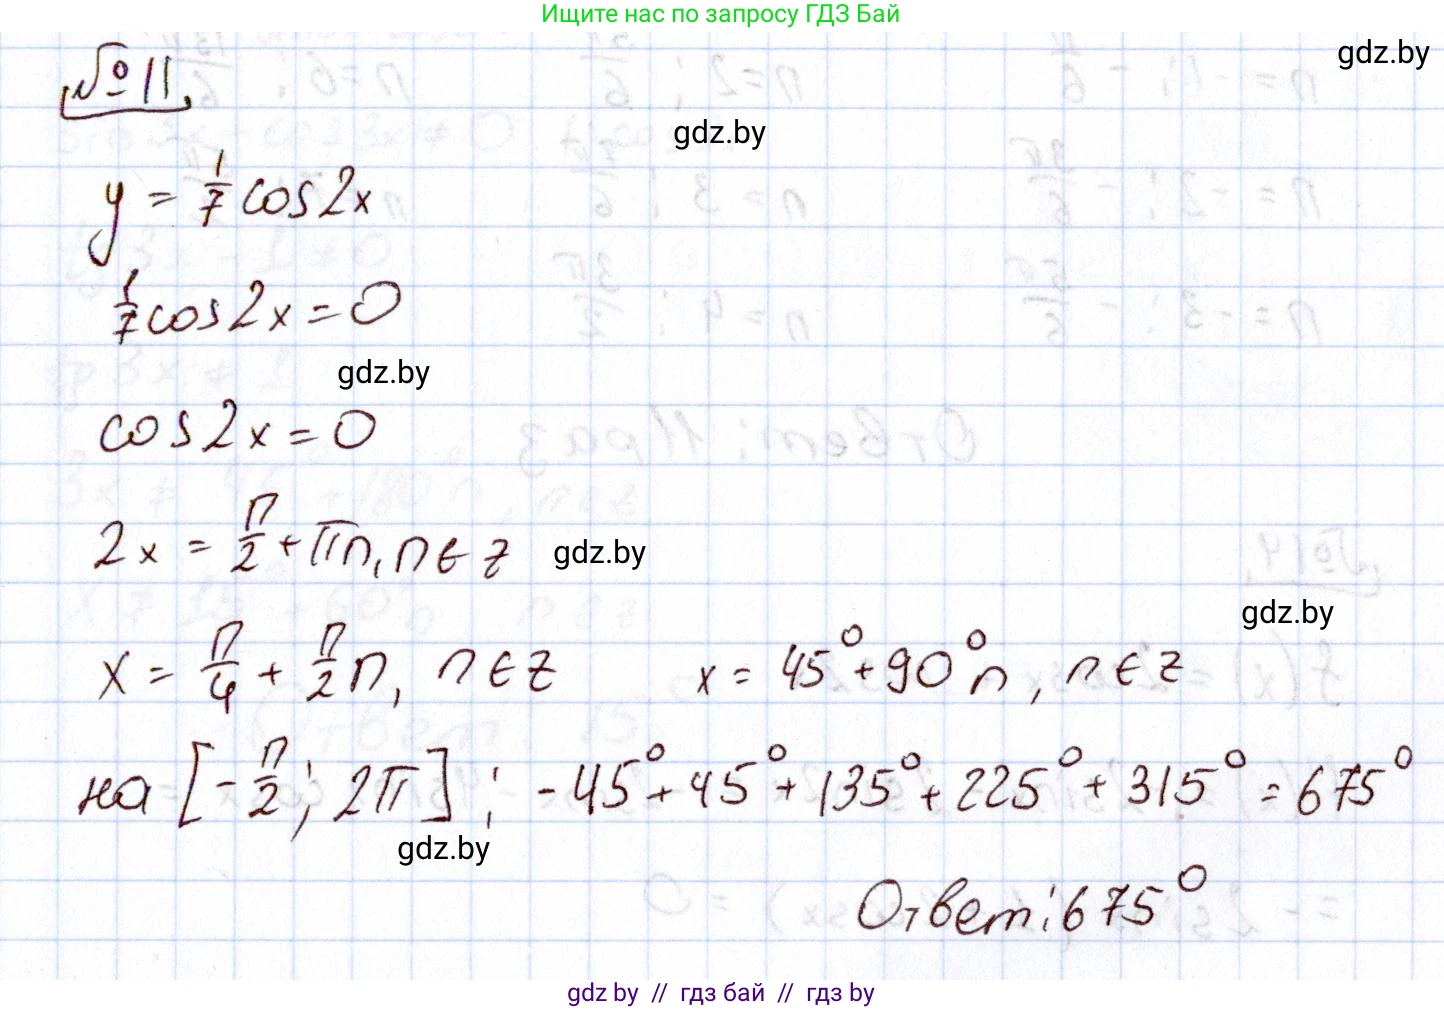 Ищите нас по запросу ГДЗ Бай
gdz.by
№ 11
gdz.by
y = 1/7 cos 2x
1/7 cos 2x = 0
gdz.by
cos 2x = 0
2x = π/2 + πn, n ∈ z
gdz.by
gdz.by
x = π/4 + π/2 n, n ∈ z
x = 45° + 90° n, n ∈ z
на [-π/2; 2π]; -45° + 45° + 135° + 225° + 315° = 675°
gdz.by
Ответ: 675°
gdz by // гдз бай // гдз by